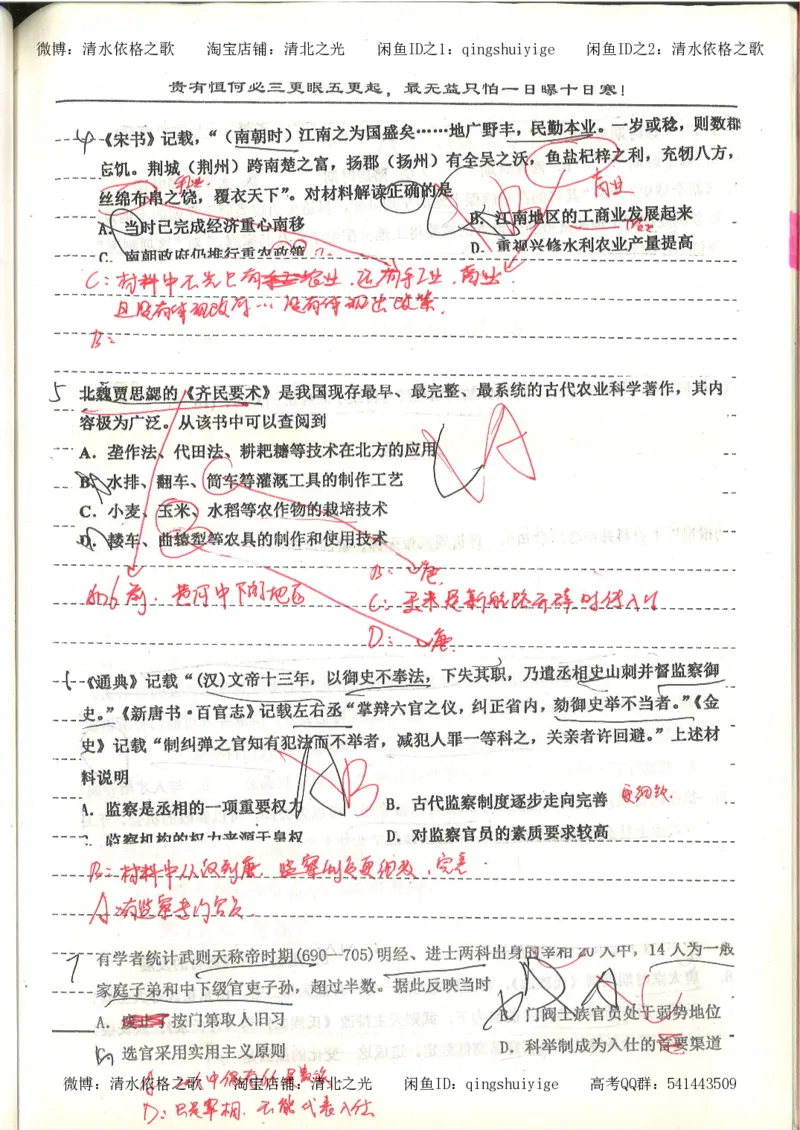 微博：清水依格之歌 淘宝店铺：清北之光 闲鱼ID之1：qingshuiyige 闲鱼ID之2：清水依格之歌
贵有恒何必三更眠五更起，最无益只怕一日曝十日寒！
4 《宋书》记载，“（南朝时）江南之为国盛矣……地广野丰，民勤本业。一岁或稔，则数郡
忘饥。荆城（荆州）跨南楚之富，扬郡（扬州）有全吴之沃，鱼盐杞梓之利，充牣八方，
丝绵布帛之饶，覆衣天下”。对材料解读正确的是
商业
A．当时已完成经济重心南移 B．江南地区的工商业发展起来
C．南朝政府仍推行重农政策 D．重视兴修水利农业产量提高
C：材料中不光只有农业，还有手工业，商业
且没有体现政府… 没有体现出政策．
B：
5 北魏贾思勰的《齐民要术》是我国现存最早、最完整、最系统的古代农业科学著作，其内
容极为广泛。从该书中可以查阅到
A．垄作法、代田法、耕耙耱等技术在北方的应用
A
B．水排、翻车、筒车等灌溉工具的制作工艺
C．小麦、玉米、水稻等农作物的栽培技术
D．耧车、曲辕犁等农具的制作和使用技术
B：唐
黄河中下游地区
C：玉米是新航路开辟时传入
D：唐
6 《通典》记载“(汉)文帝十三年，以御史不奉法，下失其职，乃遣丞相史出刺并督监察御
史。”《新唐书·百官志》记载左右丞“掌辩六官之仪，纠正省内，劾御史举不当者。”《金
史》记载“制纠弹之官知有犯法而不举者，减犯人罪一等科之，关亲者许回避。”上述材
料说明
B
A．监察是丞相的一项重要权力 B．古代监察制度逐步走向完善 更细致．
监察机构的权力来源于皇权 D．对监察官员的素质要求较高
B：材料中从汉到唐，监察制度更细致，完善．
A：有监察专门官员
7 有学者统计武则天称帝时期(690—705)明经、进士两科出身的宰相 20 人中，14 人为一般
家庭子弟和中下级官吏子孙，超过半数。据此反映当时
A．废止了按门第取人旧习 B．门阀士族官员处于弱势地位
选官采用实用主义原则 D．科举制成为入仕的首要渠道
微博：清水依格之歌 淘宝店铺：清北之光 闲鱼ID：qingshuiyige 高考QQ群：541443509
D：只是宰相．不能代表入仕